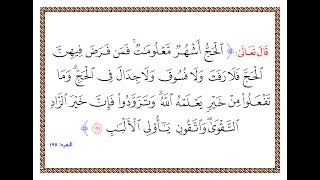 قَالَ تَعَالَى: ﴿ ٱلْحَجُّ أَشْهُرٌ مَّعْلُومَٰتٌ ۚ فَمَن فَرَضَ فِيهِنَّ
ٱلْحَجَّ فَلَا رَفَثَ وَلَا فُسُوقَ وَلَا جِدَالَ فِى ٱلْحَجِّ ۗ وَمَا
تَفْعَلُوا۟ مِنْ خَيْرٍ يَعْلَمْهُ ٱللَّهُ ۗ وَتَزَوَّدُوا۟ فَإِنَّ خَيْرَ ٱلزَّادِ
ٱلتَّقْوَىٰ ۚ وَٱتَّقُونِ يَٰٓأُو۟لِى ٱلْأَلْبَٰبِ ١٩٧ ﴾
البقرة: ١٩٧